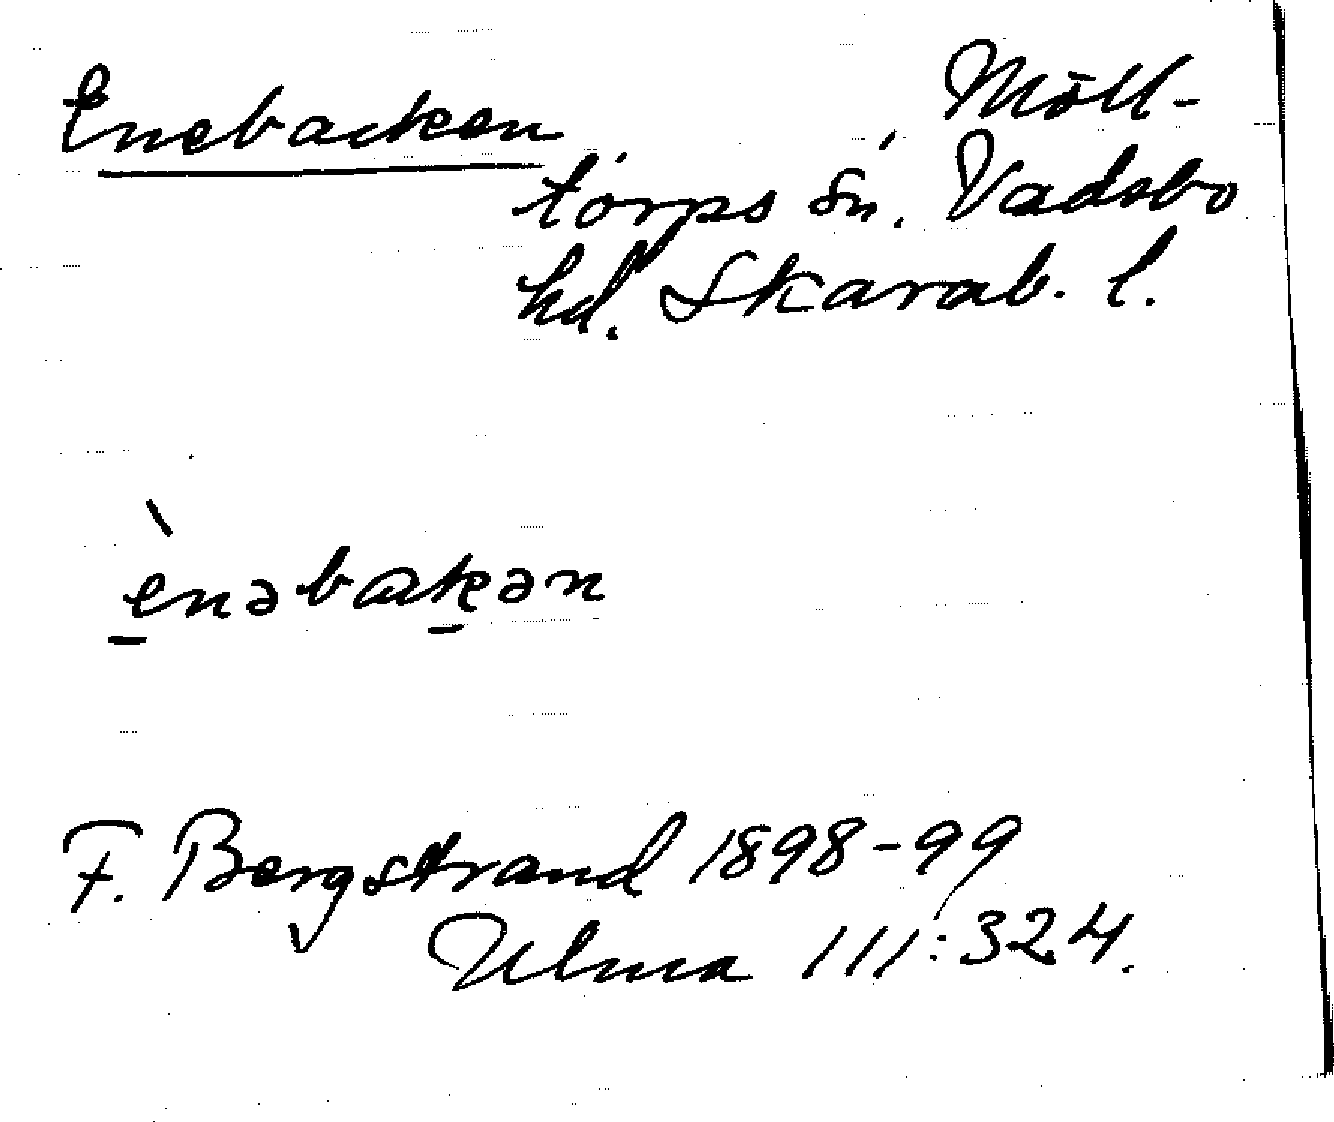 Enebacken Möll-
torps sn. Vadsbo
hd. Skarab. l.
ènəbakən
F. Bergstrand 1898-99
Ulma 111:324.